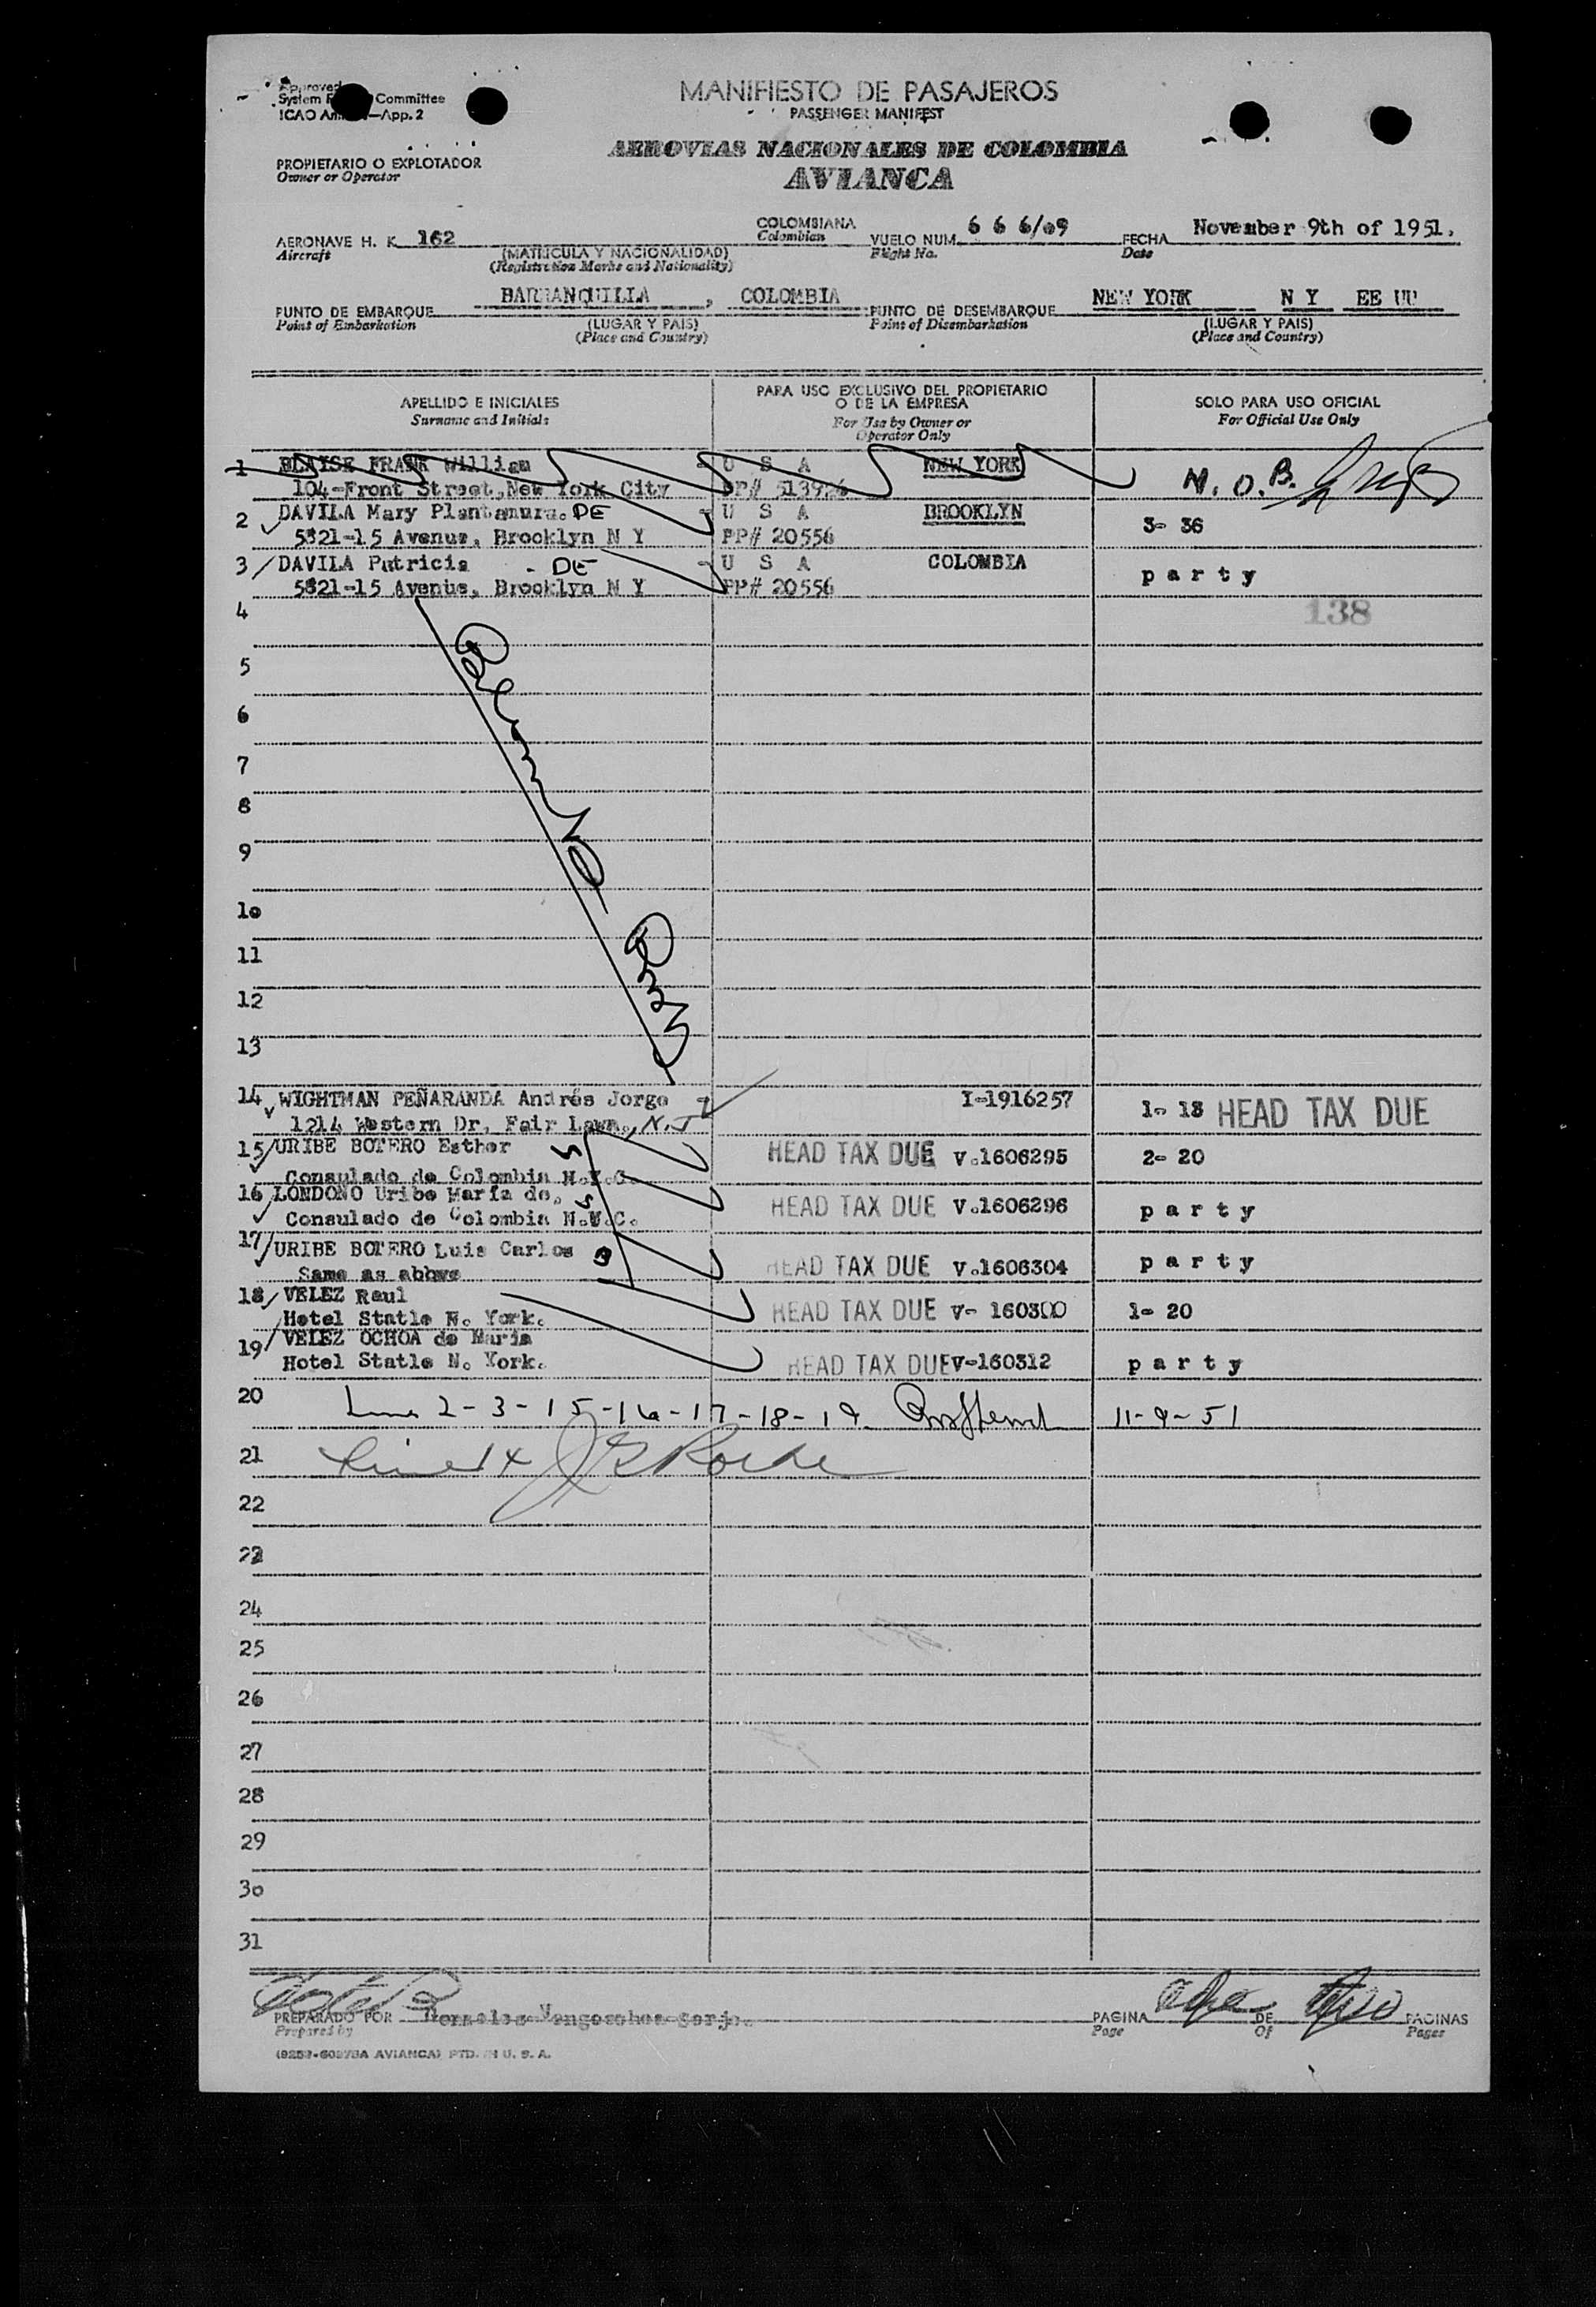 Approved
System Committee
ICAO —App. 2
MANIFIESTO DE PASAJEROS
PASSENGER MANIFEST
AEROVIAS NACIONALES DE COLOMBIA
AVIANCA
PROPIETARIO O EXPLOTADOR
Owner or Operator
AERONAVE H. K. 162 COLOMBIANA VUELO NUM. 6 6 6/09 FECHA November 9th of 1951.
Aircraft (MATRICULA Y NACIONALIDAD) Colombian Flight No. Date
(Registration Marks and Nationality)
PUNTO DE EMBARQUE BARRANQUILLA , COLOMBIA PUNTO DE DESEMBARQUE NEW YORK N Y EE UU
Point of Embarkation (LUGAR Y PAIS) Point of Disembarkation (LUGAR Y PAIS)
(Place and Country) (Place and Country)
APELLIDO E INICIALES PARA USO EXCLUSIVO DEL PROPIETARIO O DE LA EMPRESA SOLO PARA USO OFICIAL
Surname and Initials For Use by Owner or Operator Only For Official Use Only
1 BLAISE FRANK William U S A NEW YORK N.O.B.
104-Front Street, New York City PP# 513926
2 DAVILA Mary Plantamura. DE U S A BROOKLYN 3- 36
5321-15 Avenue, Brooklyn N Y PP# 20556
3 DAVILA Patricia - DE U S A COLOMBIA party
5321-15 Avenue, Brooklyn N Y PP# 20556
4 138
5
6
7
8
9
10
11
12
13
14 WIGHTMAN PEÑARANDA Andrés Jorge I-1916257 1- 18 HEAD TAX DUE
1214 Western Dr, Fair Lawn, N.J
15 URIBE BOTERO Esther S HEAD TAX DUE V.1606295 2- 20
Consulado de Colombia N.Y.C.
16 LONDOÑO Uribe María de. S HEAD TAX DUE V.1606296 party
Consulado de Colombia N.Y.C.
17 URIBE BOTERO Luis Carlos HEAD TAX DUE V.1606304 party
Same as above
18 VELEZ Raul HEAD TAX DUE V- 160300 1- 20
Hotel Statle N. York.
19 VELEZ OCHOA de Maria HEAD TAX DUE V-160312 party
Hotel Statle N. York.
20 Lines 2-3-15-16-17-18-19 11-9-51
21 Line 14 J G Roche
22
23
24
25
26
27
28
29
30
31
PREPARADO POR
Prepared by
PAGINA DE PAGINAS
Page Of Pages
AVIANCA) PTD. IN U. S. A.